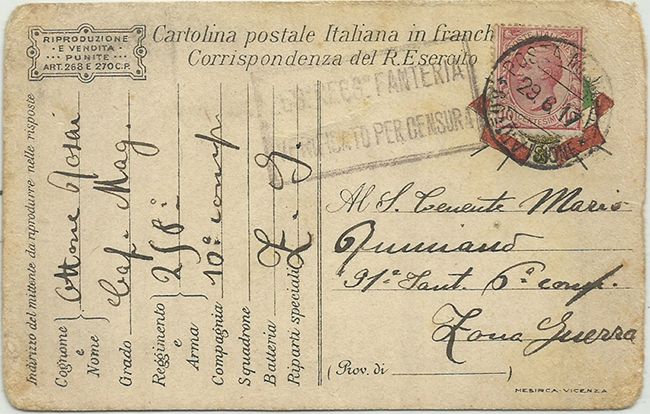 RIPRODUZIONE
E VENDITA
PUNITE
ART. 268 E 270 C.P.
Cartolina postale Italiana in franch
Corrispondenza del R. Esercito
REGG.º FANTERIA
VERIFICATO PER CENSURA
POSTE ITALIANE
CENTESIMI
29.6.17
Indirizzo del mittente da riprodurre nelle risposte
Cognome e Nome Ottone
Grado Cap. Mag.
Reggimento e Arma 258º
Compagnia 10ª comp
Squadrone
Batteria Z. G.
Riparti speciali
Al S. Tenente Mario
91º Fant. 6ª comp.
Zona Guerra
(Prov. di )
MESIRCA-VICENZA